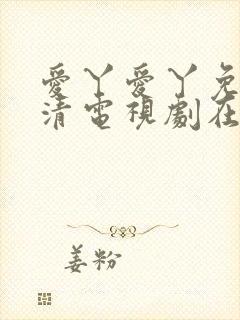 愛丫愛丫免
清電視劇在
姜粉